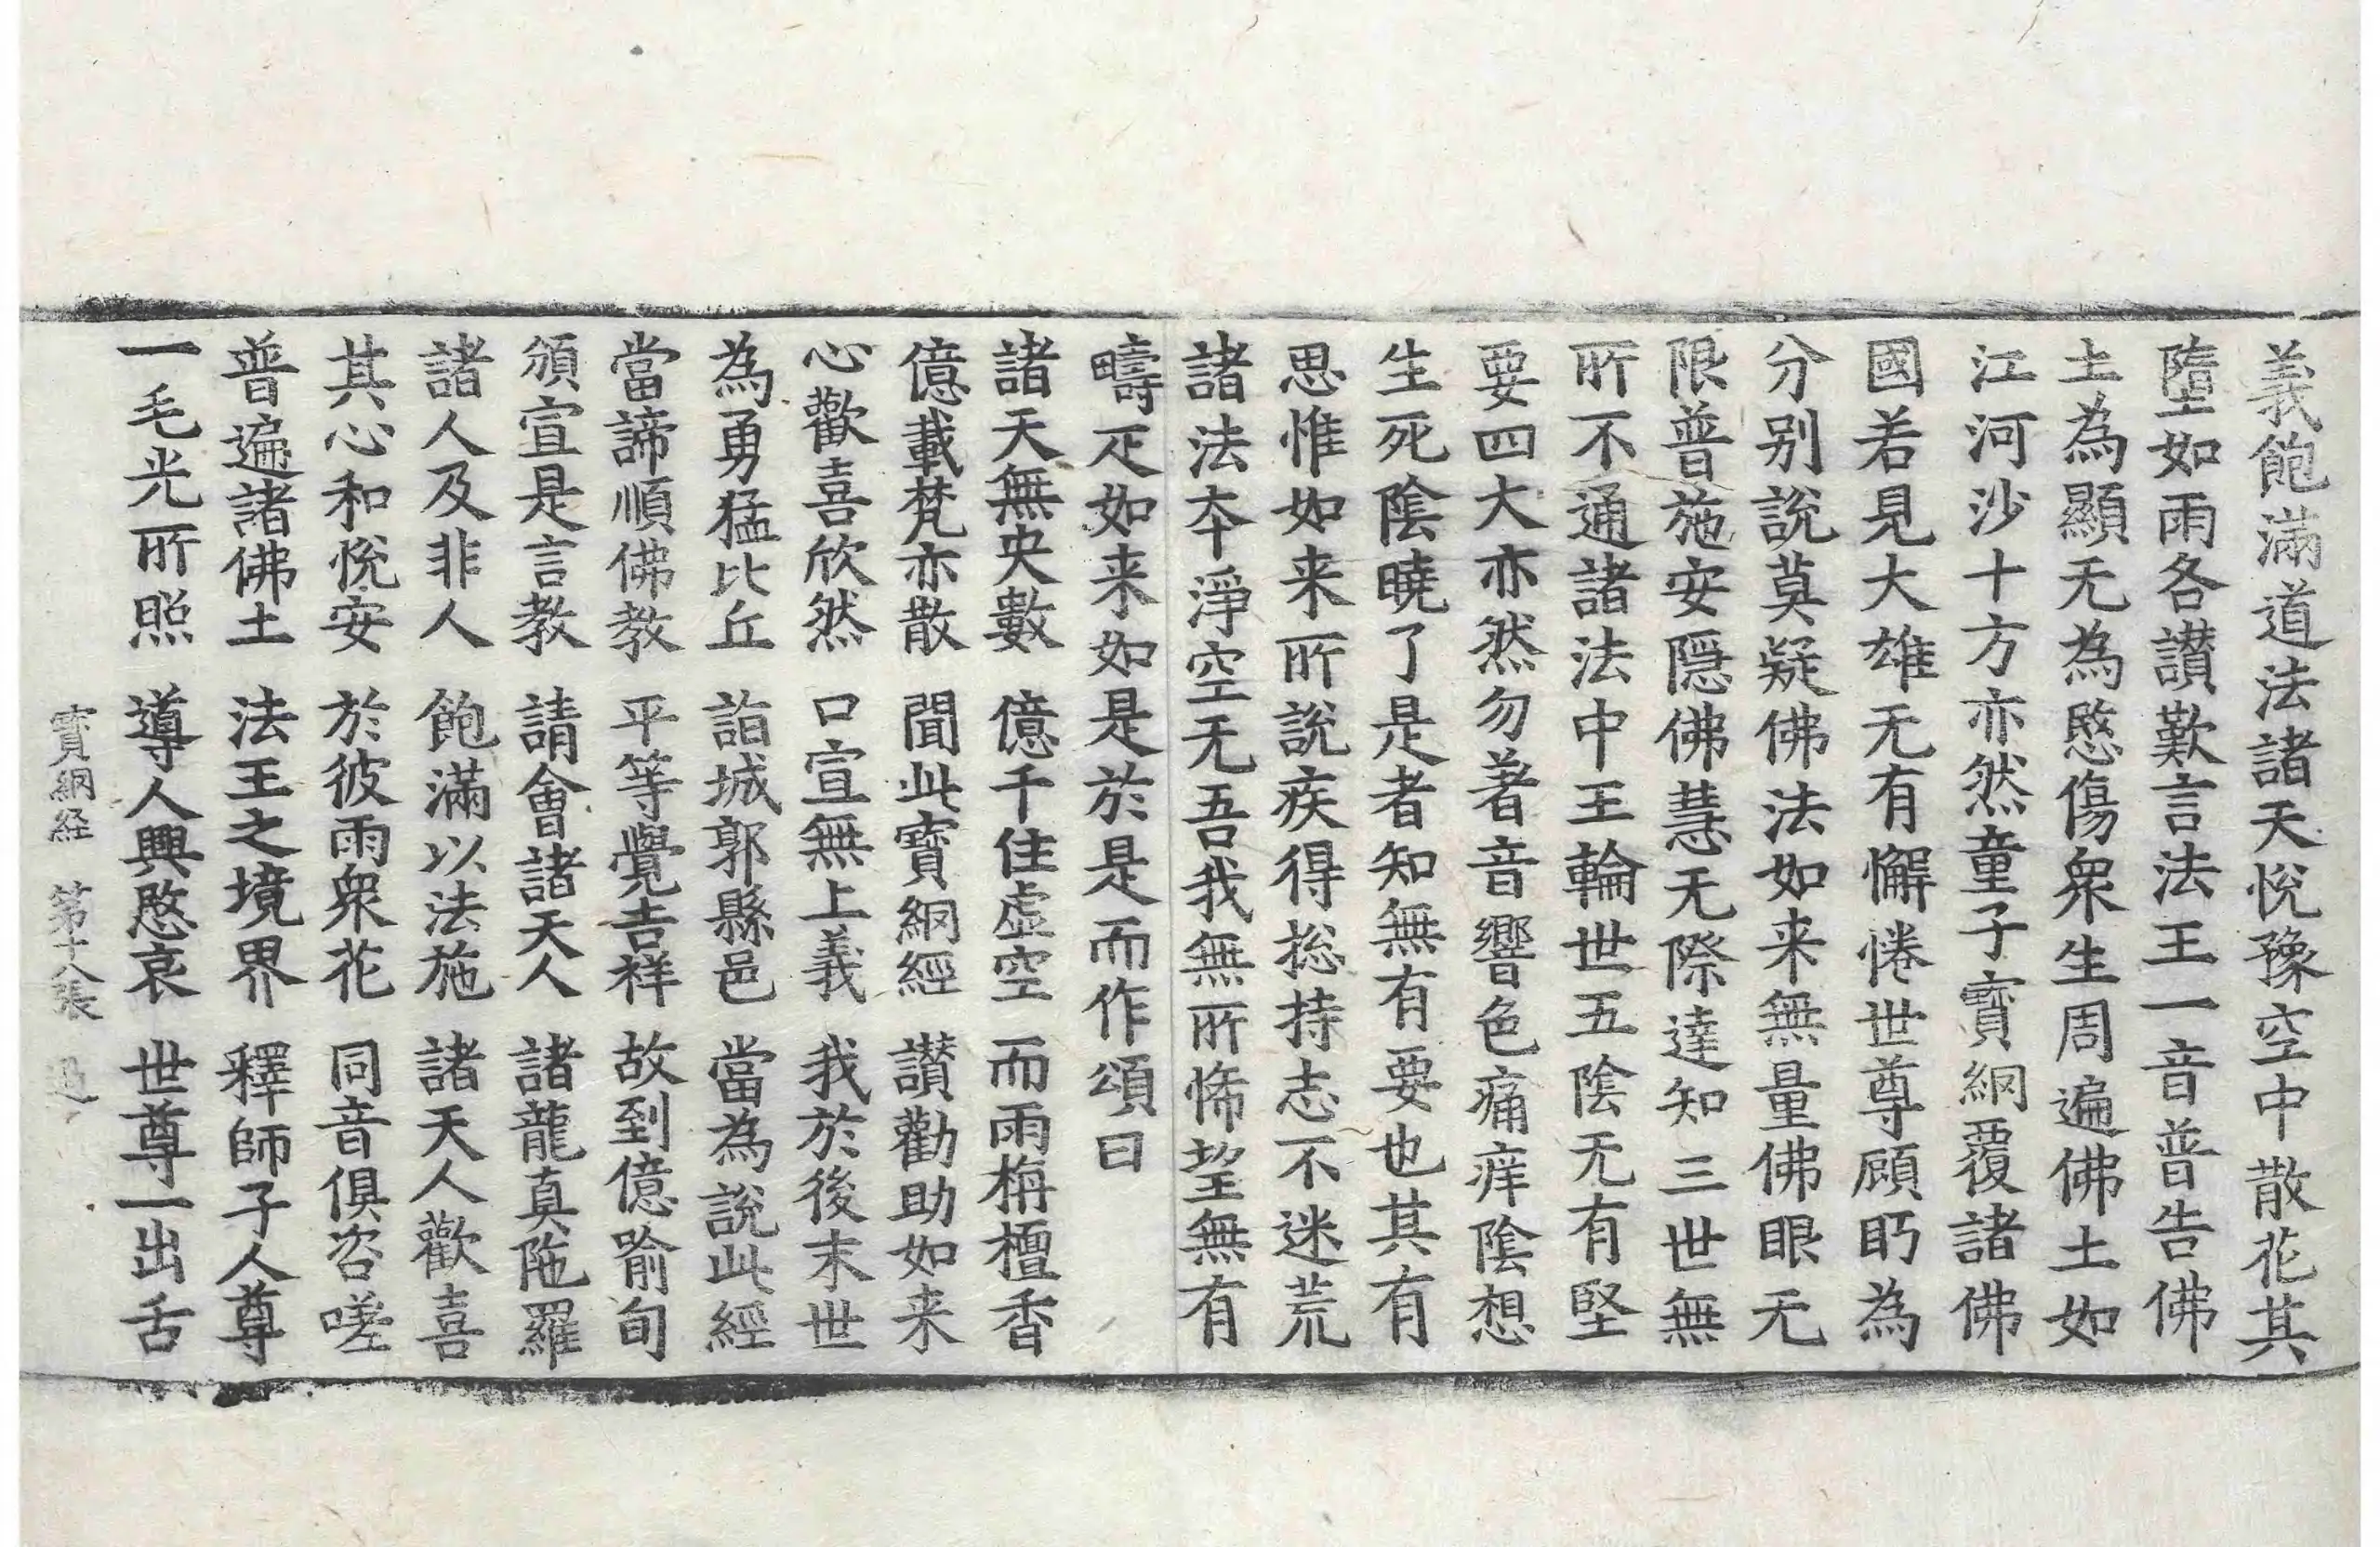 義飽滿道法諸天悅豫空中散花其
墮如雨各讃歎言法王一音普告佛
土為顯无為愍傷衆生周遍佛土如
江河沙十方亦然童子寶網覆諸佛
國若見大雄无有懈惓世尊顧眄為
分别說莫疑佛法如来無量佛眼无
限普施安隠佛慧无際達知三世無
所不通諸法中王輪世五陰无有堅
要四大亦然勿著音響色痛痒陰想
生死陰曉了是者知無有要也其有
思惟如来所說疾得揔持志不迷荒
諸法夲淨空无吾我無所悕望無有
疇疋如来如是於是而作頌曰
諸天無央數 億千住虛空 而雨栴檀香
億載梵亦散 聞此寶網經 讃勸助如来
心歡喜欣然 口宣無上義 我於後末世
為勇猛比丘 詣城郭縣邑 當為說此經
當諦順佛教 平等覺吉祥 故到億踰旬
頒宣是言教 請會諸天人 諸龍真陁羅
諸人及非人 飽滿以法施 諸天人歡喜
其心和悅安 於彼雨衆花 同音俱咨嗟
普遍諸佛土 法王之境界 釋師子人尊
一毛光所照 導人興愍哀 世尊一出舌
寶網経 第十八張